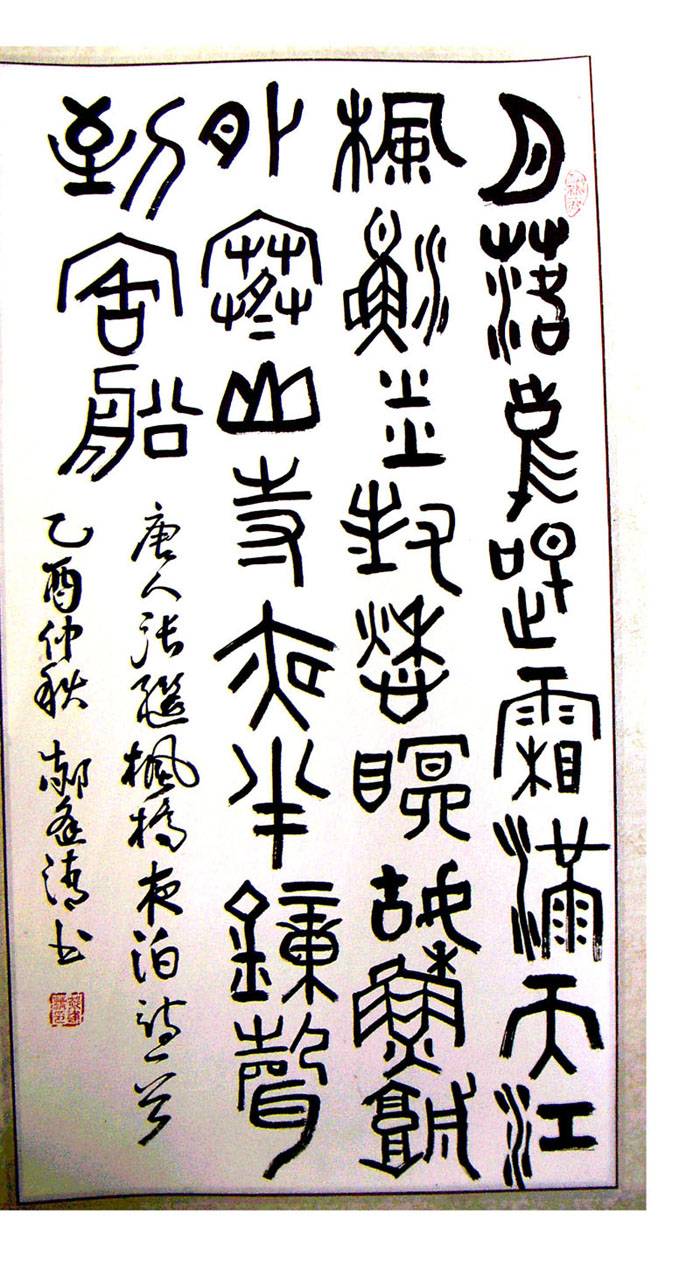 月落烏啼霜滿天江
楓漁火對愁眠姑蘇城
外寒山寺夜半鐘聲
到客船
唐人張繼楓橋夜泊詩一首
乙酉仲秋 郝 书